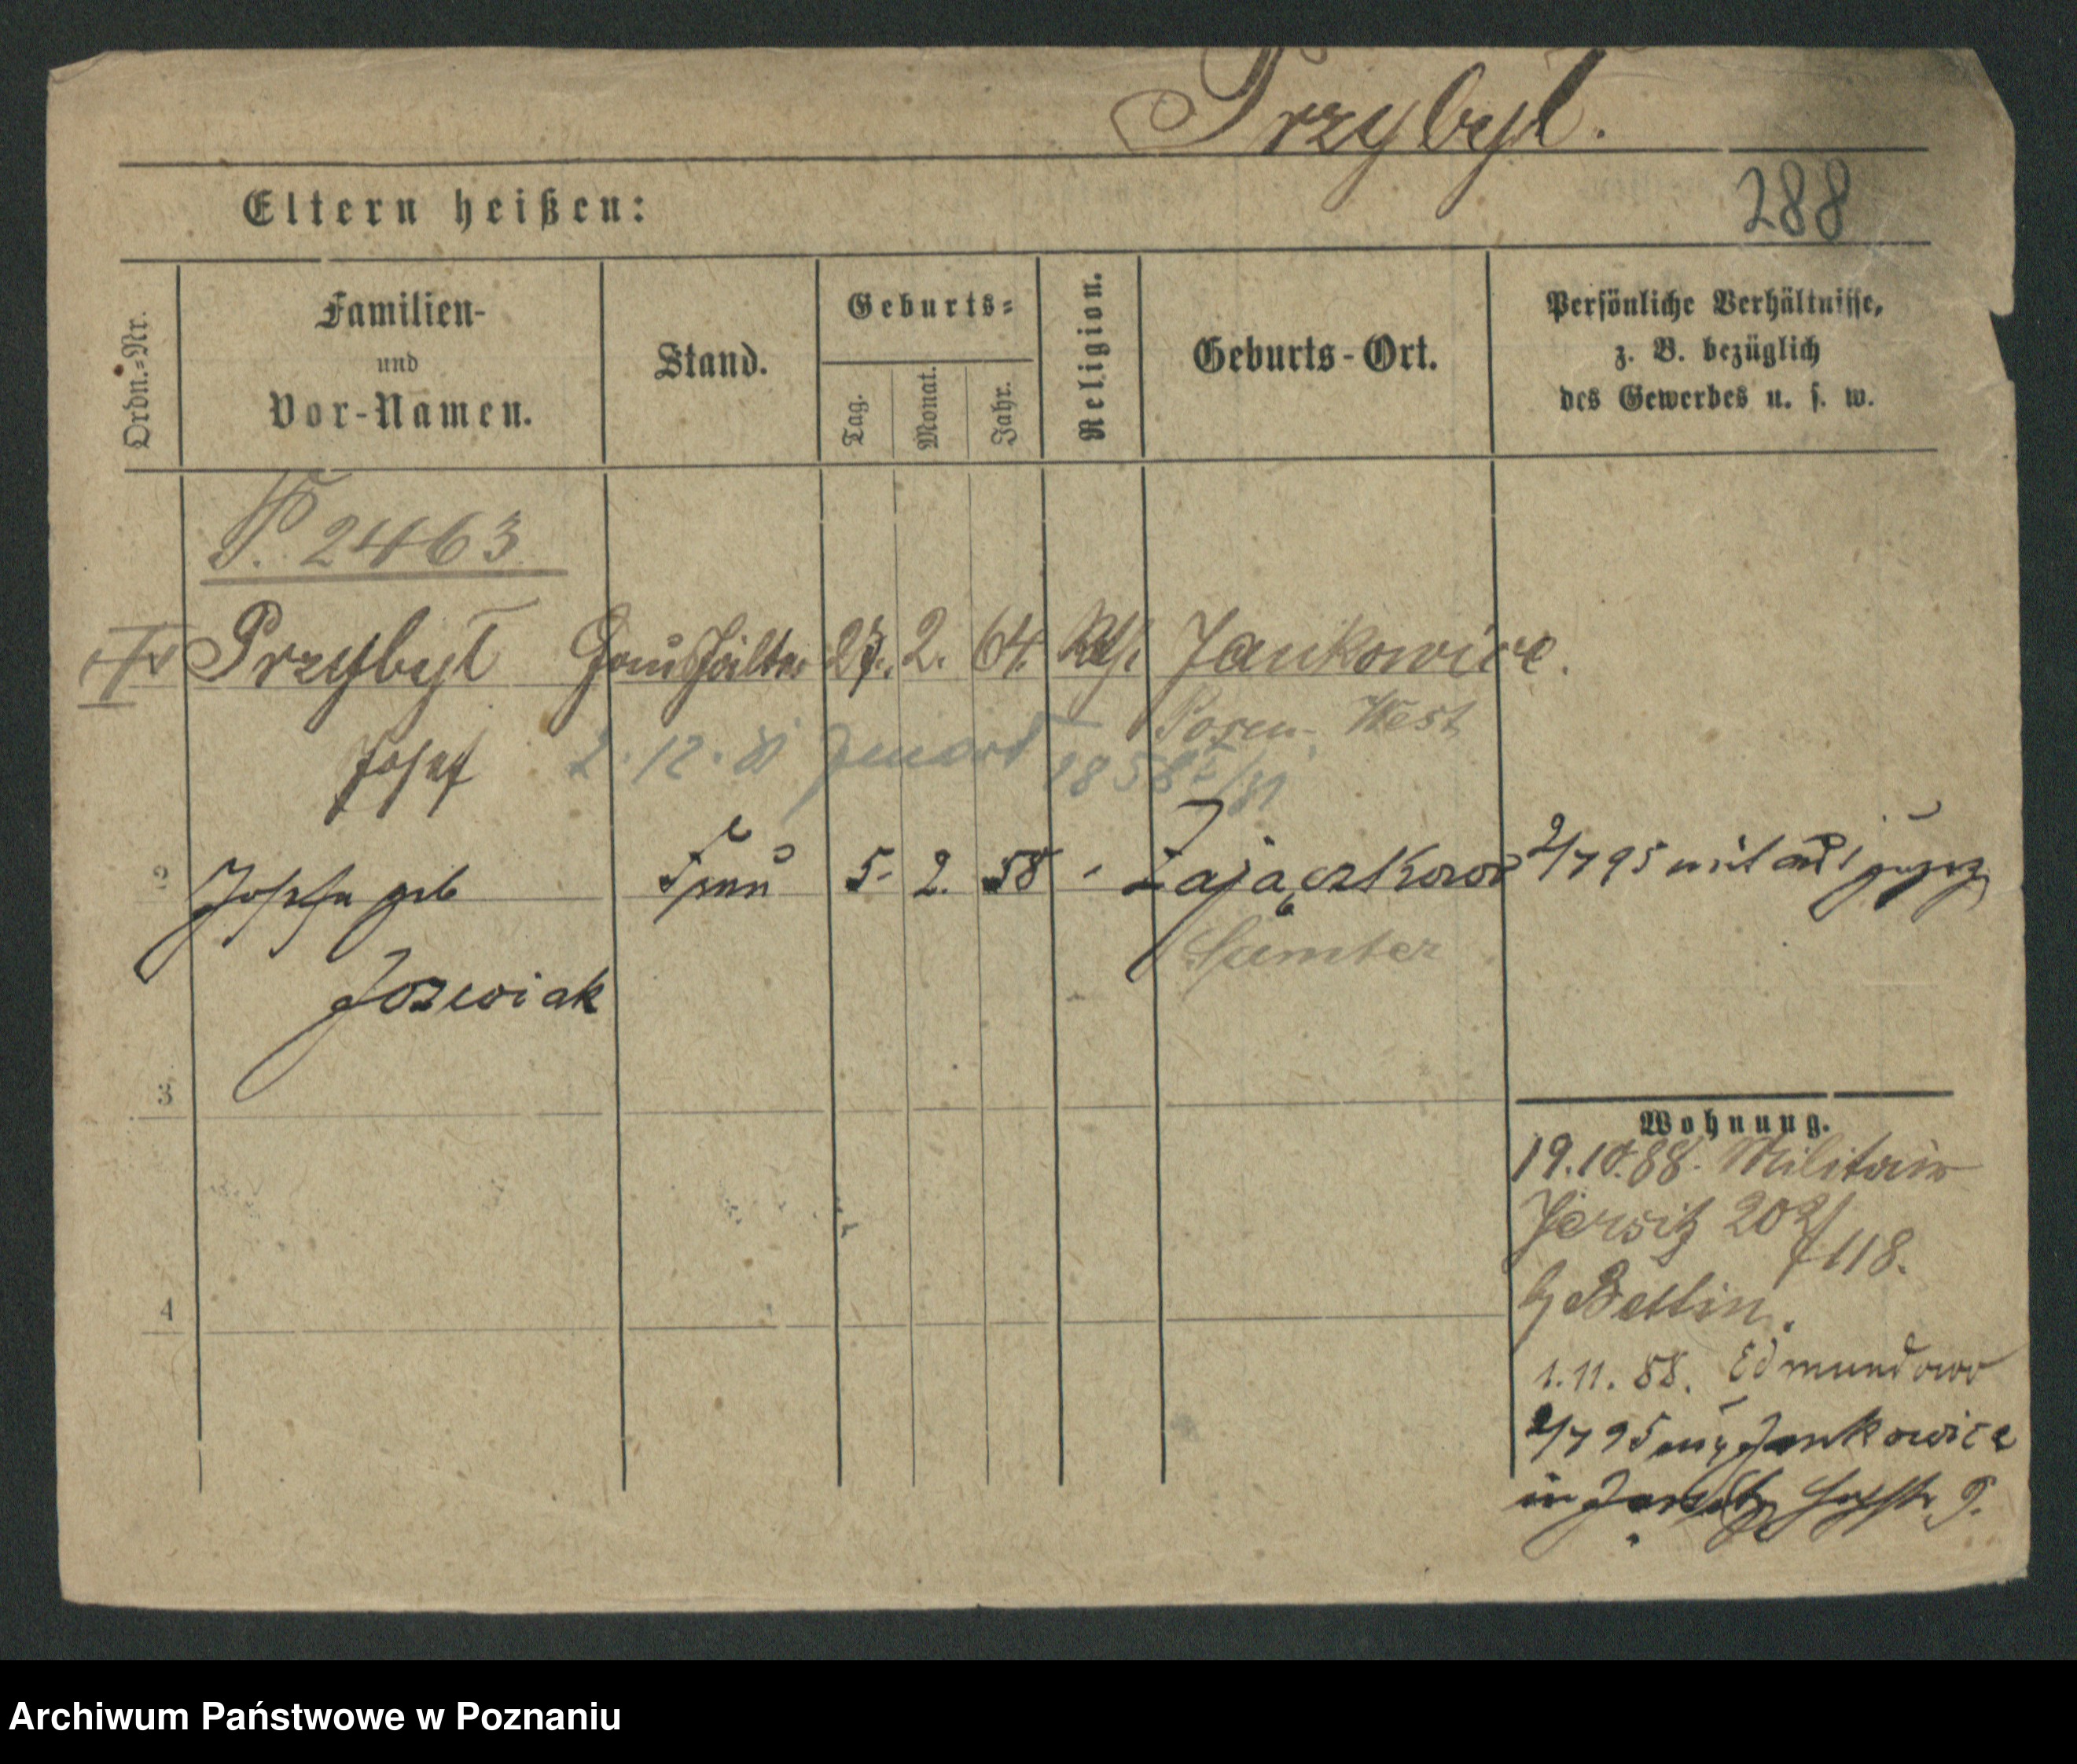 Przybył.
288
Eltern heißen:
Ordn.-Nr.
Familien-
und
Vor-Namen.
Stand.
Geburts-
Tag.
Monat.
Jahr.
Religion.
Geburts-Ort.
Persönliche Verhältnisse,
z. B. bezüglich
des Gewerbes u. s. w.
P. 2463
Przybył Haushälter 2. 64. Kth. Jankowice.
Posen West
Josef
2.12.
2 Josefa geb Frau 5. 2. 58 Zajączkowo 2/7 95 mit
Samter
Jozwiak
3
4
Wohnung.
19.10.88. Militair
Jersitz 202/118.
b/ Bettin.
1.11.88. Edmundowo
2/7 95 Jankowice
in Jersitz 9.
Archiwum Państwowe w Poznaniu